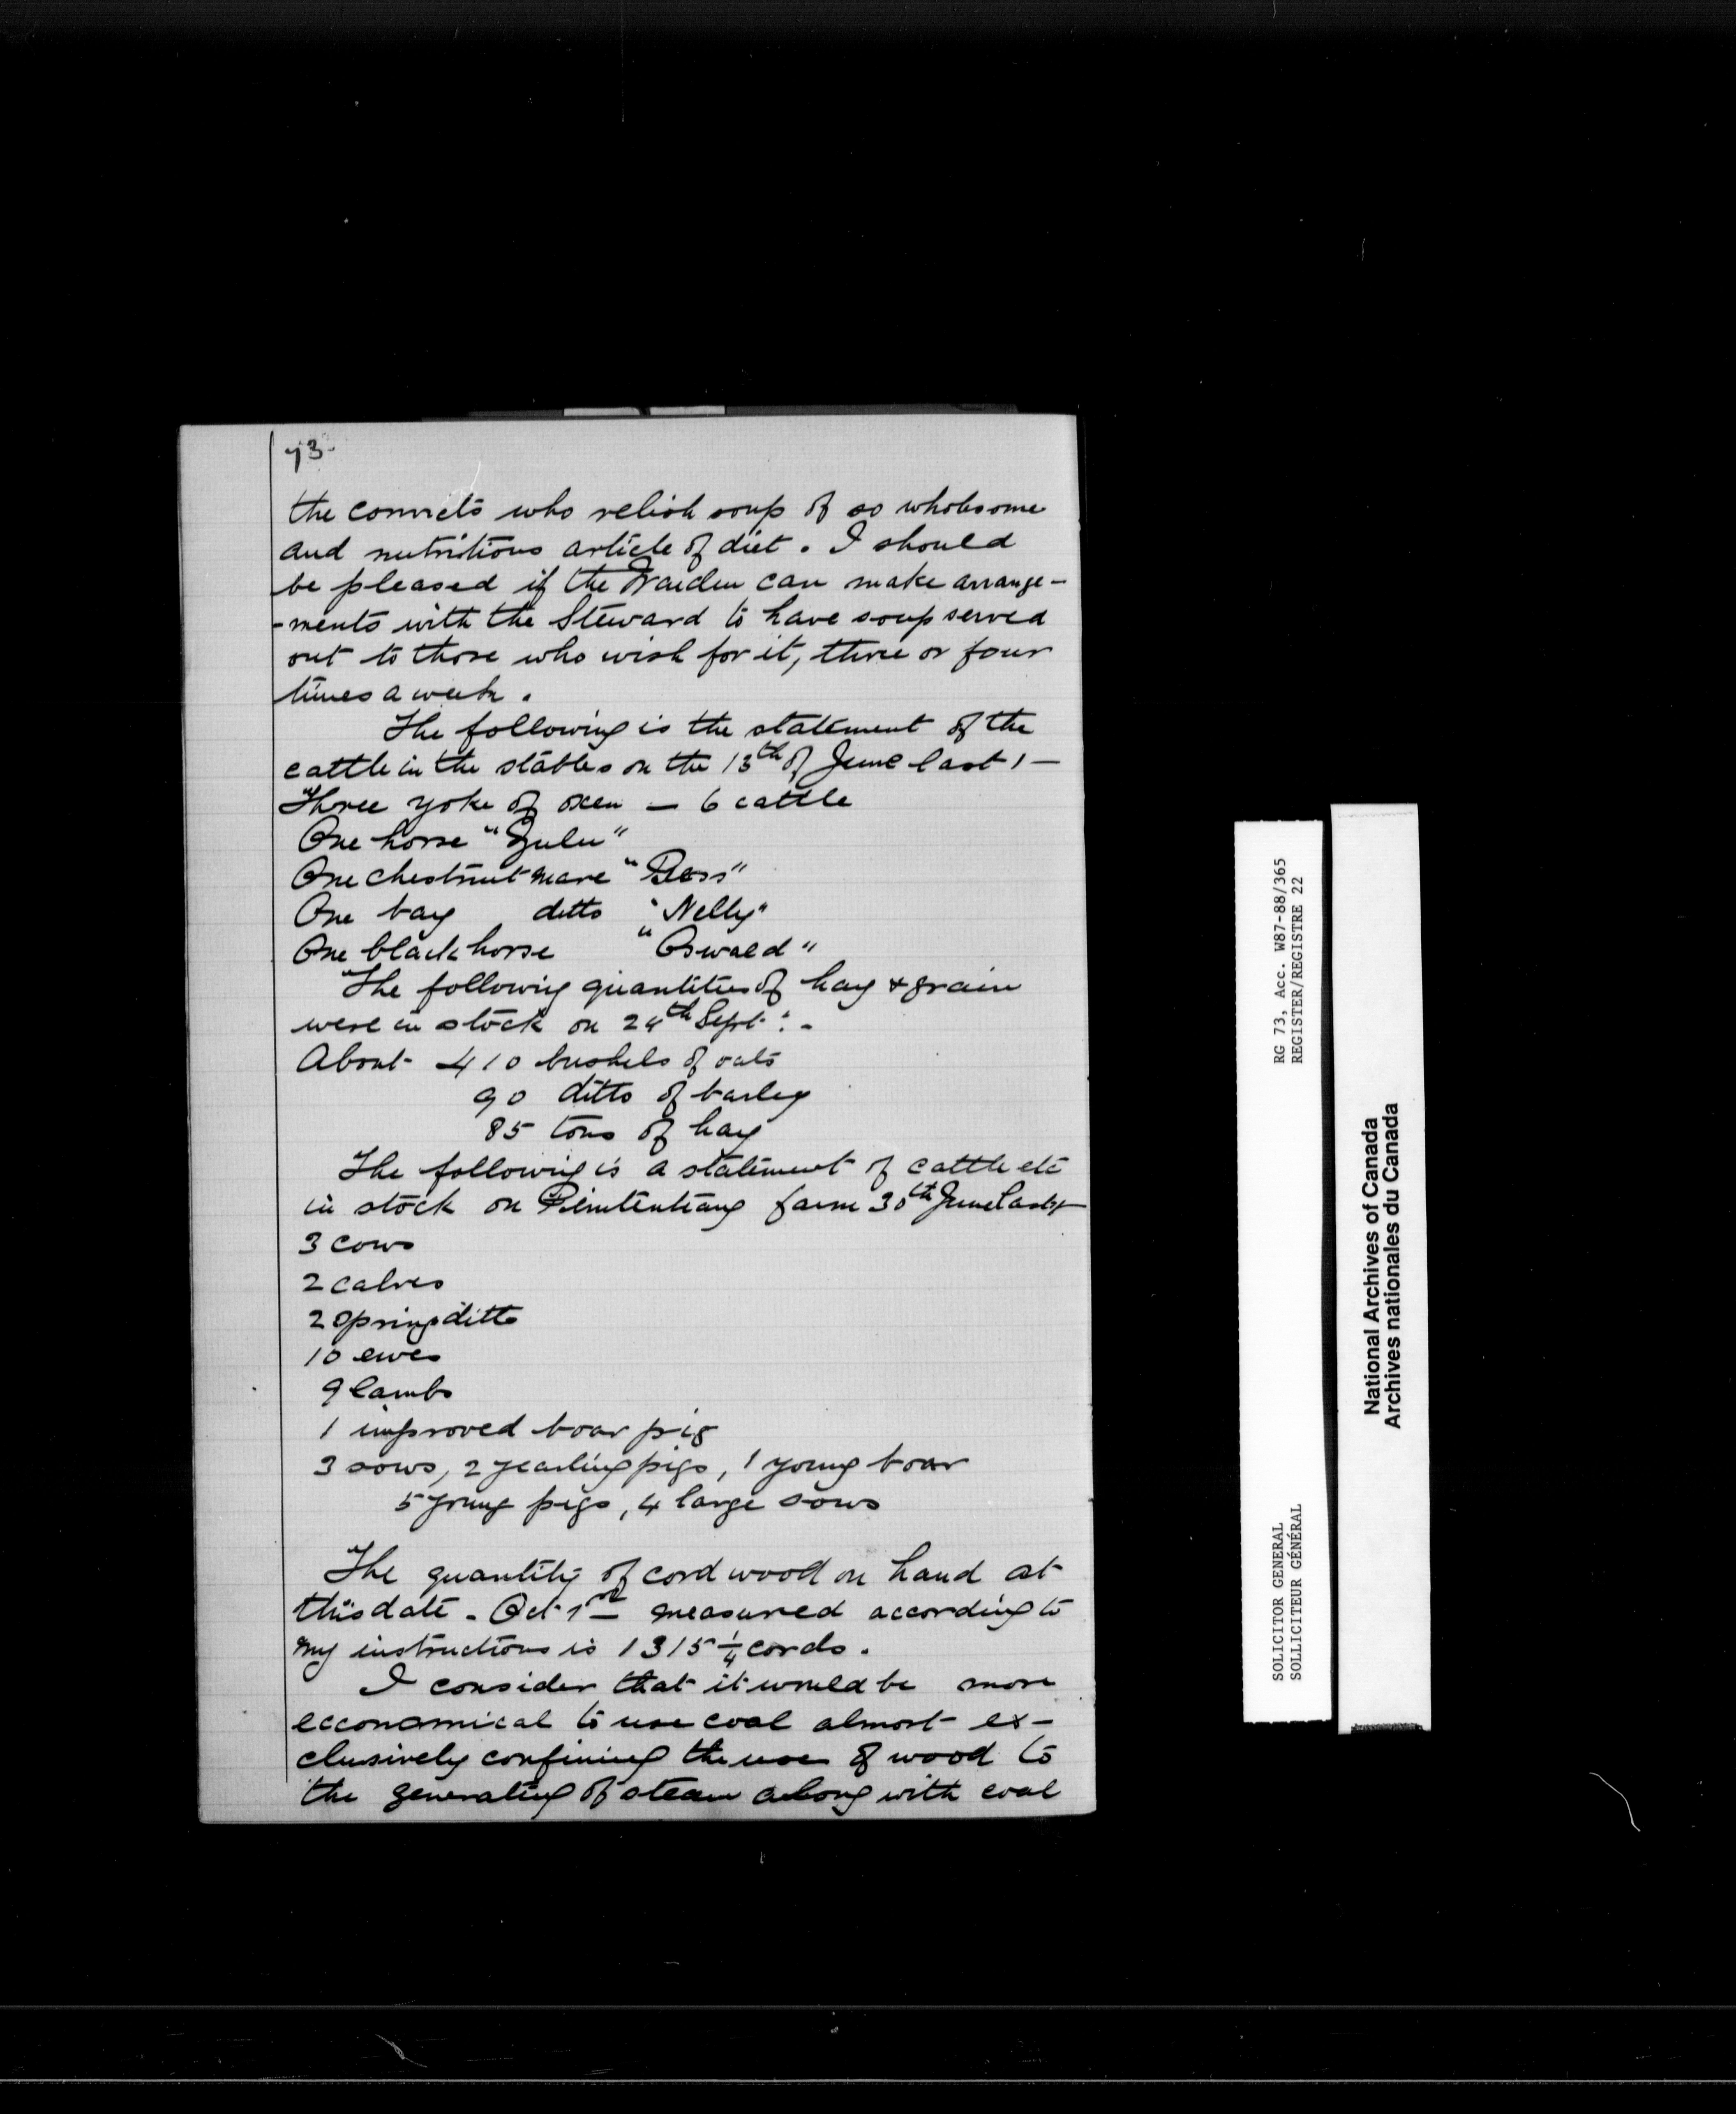 73.
the convicts who relish soup of so wholesome
and nutritious article of diet. I should
be pleased if the Warden can make arrange-
-ments with the Steward to have soup served
out to those who wish for it, three or four
times a week.
The following is the statement of the
cattle in the stables on the 13th of June last :-
Three yoke of oxen - 6 cattle
One horse "Zulu"
One chestnut mare "Bess"
One bay ditto "Nelly"
One black horse "Oswald"
The following quantities of hay & grain
were in stock on 24th Sept :-
About 410 bushels of oats
90 ditto of barley
85 tons of hay
The following is a statement of cattle etc
in stock on Penitentiary farm 30th June last :-
3 cows
2 calves
2 spring ditto
10 ewes
9 lambs
1 improved boar pig
3 sows, 2 yearling pigs, 1 young boar
5 young pigs, 4 large sows
The quantity of cord wood on hand at
this date - Oct 1st measured according to
my instructions is 1315 1/4 cords.
I consider that it would be more
ecconomical to use coal almost ex-
clusively confining the use of wood to
the generating of steam along with coal
RG 73, Acc. W87-88/365
REGISTER/REGISTRE 22
SOLICITOR GENERAL
SOLLICITEUR GÉNÉRAL
National Archives of Canada
Archives nationales du Canada